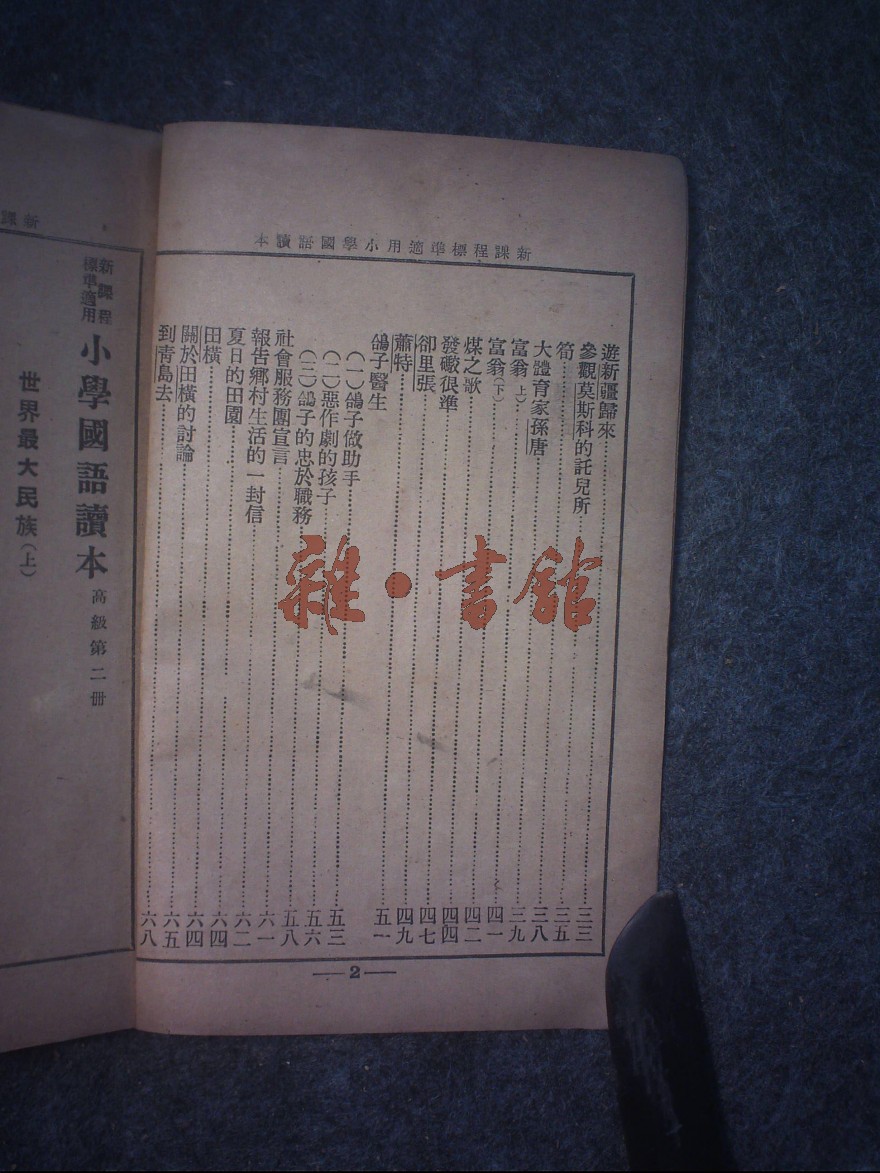 新課程標準適用小學國語讀本
遊新疆歸來 三三
參觀莫斯科的託兒所 三五
筍 三八
大體育家孫唐 三九
富翁(上) 四一
富翁(下) 四二
煤之歌 四四
發礮很準 四七
卻里張 四九
蕭特 五一
鴿子醫生
(一)鴿子做助手 五三
(二)惡作劇的孩子 五六
(三)鴿子的忠於職務 五八
社會服務團宣言 六一
報告鄉村生活的一封信 六二
夏日的田園 六四
田橫 六四
關於田橫的討論 六五
到青島去 六八
—2—
新課
新課程標準適用 小學國語讀本 高級第二册
世界最大民族(上)
雜·書館